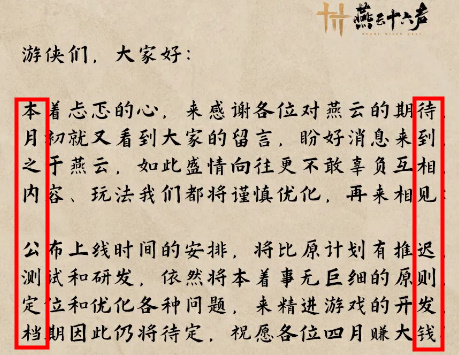 燕云十六声
游侠们，大家好：
本着忐忑的心，来感谢各位对燕云的期待
月初就又看到大家的留言，盼好消息来到
之于燕云，如此盛情向往更不敢辜负互相
内容、玩法我们都将谨慎优化，再来相见：
公布上线时间的安排，将比原计划有推迟
测试和研发，依然将本着事无巨细的原则
定位和优化各种问题，来精进游戏的开发
档期因此仍将待定，祝愿各位四月赚大钱